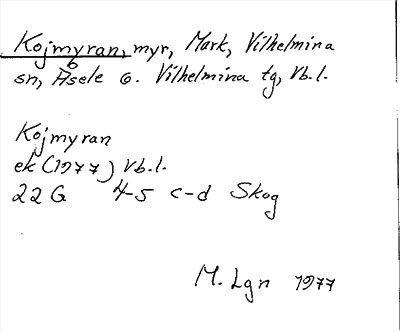 Kojmyran, myr, Mark, Vilhelmina
sn, Åsele o. Vilhelmina tg, Vb.l.
Kojmyran
ek (1977) Vb.l.
22 G 4-5 c-d Skog
M. Lgn 1977